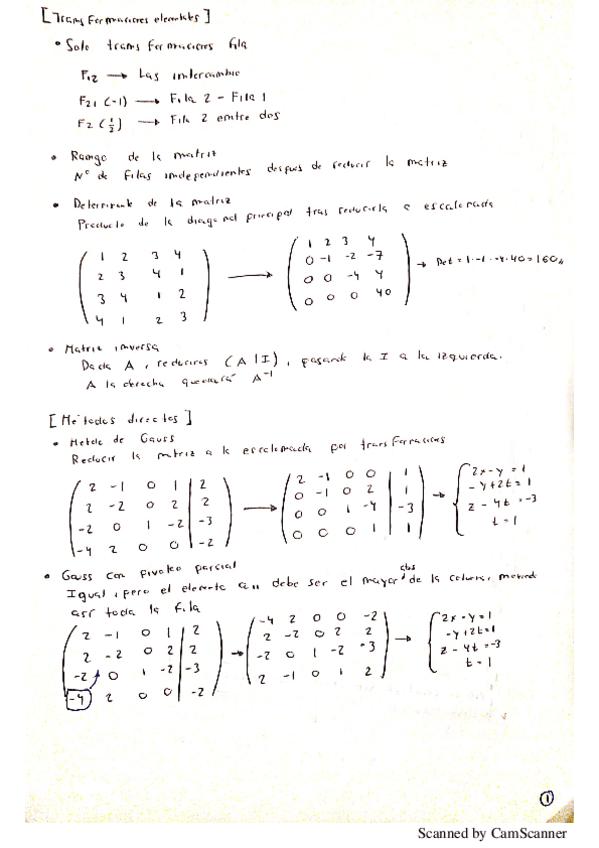 [Transformaciones elementales]
• Solo transformaciones fila
F₁₂ → Las intercambio
F₂₁ (-1) → Fila 2 - Fila 1
F₂ (1/2) → Fila 2 entre dos
• Rango de la matriz
Nº de filas independientes después de reducir la matriz
• Determinante de la matriz
Producto de la diagonal principal tras reducirla a escalonada
1 2 3 4 | 1 2 3 4
2 3 4 1 → 0 -1 -2 -7 → Det = 1·-1·-4·40=160
3 4 1 2 | 0 0 -4 4
4 1 2 3 | 0 0 0 40
• Matriz inversa
Dada A, reducimos (A|I), pasando la I a la izquierda.
A la derecha quedará A⁻¹
[Métodos directos]
• Método de Gauss
Reducir la matriz a la escalonada por transformaciones
2 -1 0 1 | 2   2 -1 0 0 | 1   2x-y=1
2 -2 0 2 | 2 → 0 -1 0 2 | 1 → -y+2t=1
-2 0 1 -2 | -3   0 0 1 -4 | -3   z-4t=-3
-4 2 0 0 | -2   0 0 0 1 | 1   t=1
• Gauss con pivoteo parcial
abs
Igual, pero el elemento a₁₁ debe ser el mayor de la columna,
así toda la fila
2 -1 0 1 | 2   -4 2 0 0 -2   2x-y=1
2 -2 0 2 | 2 → 2 -2 0 2 2 → -y+2t=1
-2 0 1 -2 | -3   -2 0 1 -2 -3   z-4t=-3
-4 2 0 0 | -2   2 -1 0 1 2   t=1
1
Scanned by CamScanner